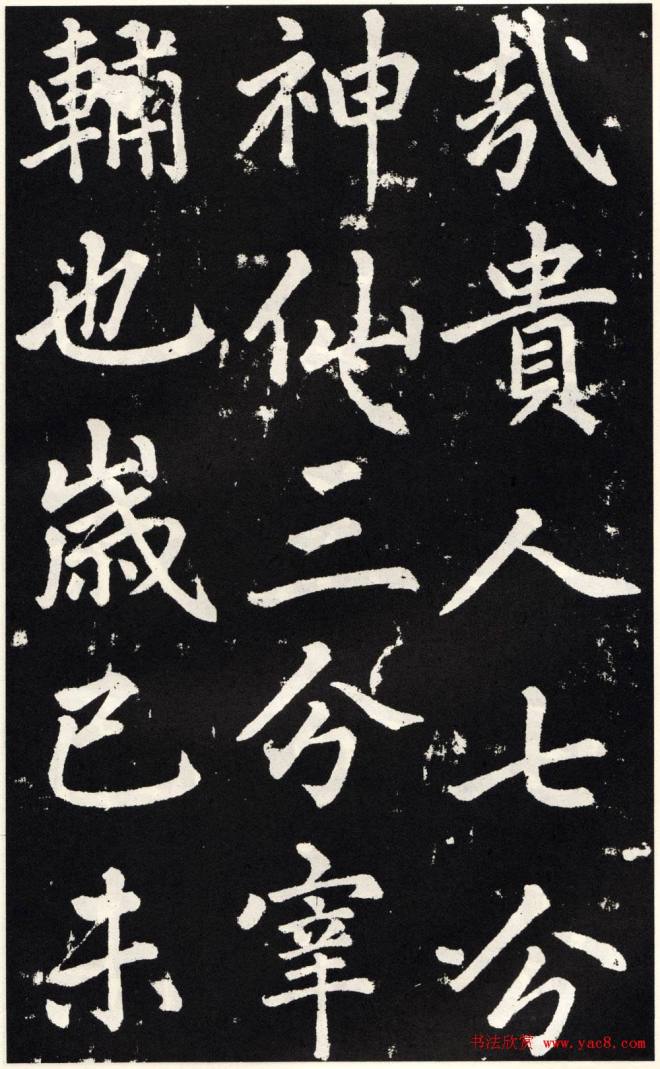 哉貴人七分
神仙三分宰
輔也歲己未
书法欣赏 www.yac8.com